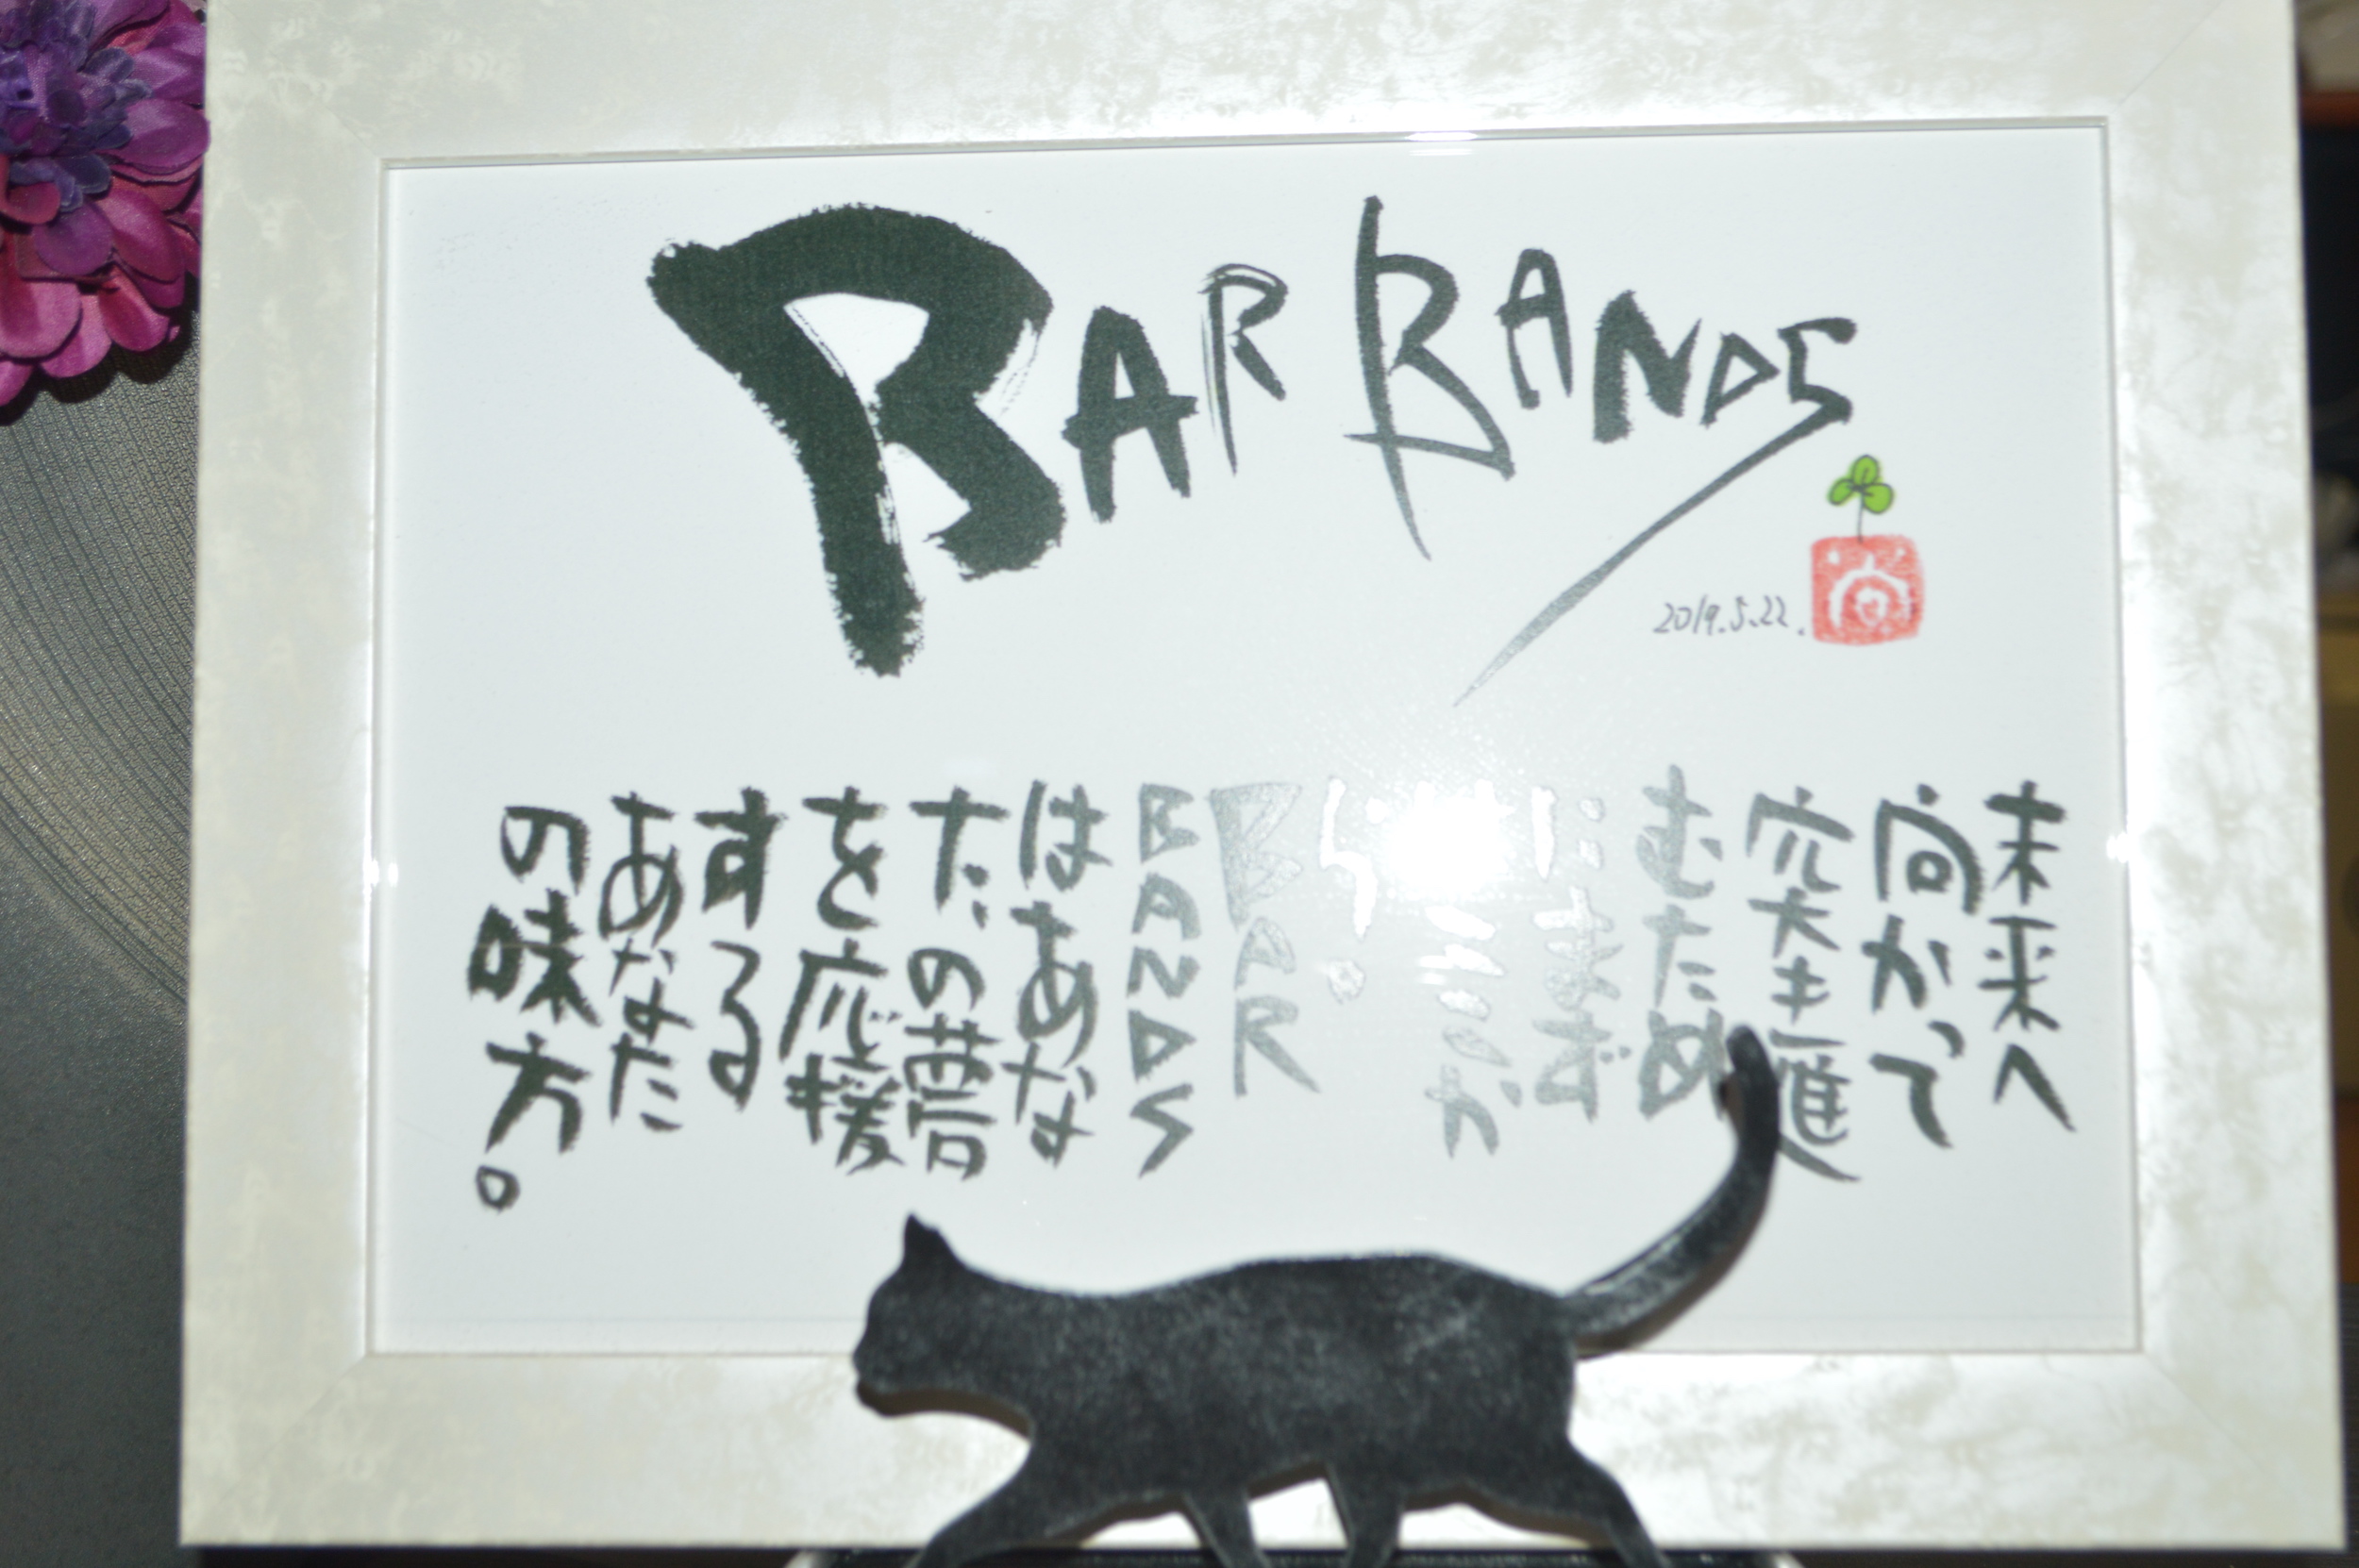 BAR BANDS
2019.5.22.
未来へ
向かって
突き進
むため
にまず
ここか
ら。
BAR
BANDS
はあな
たの夢
を応援
する
あなた
の味方。